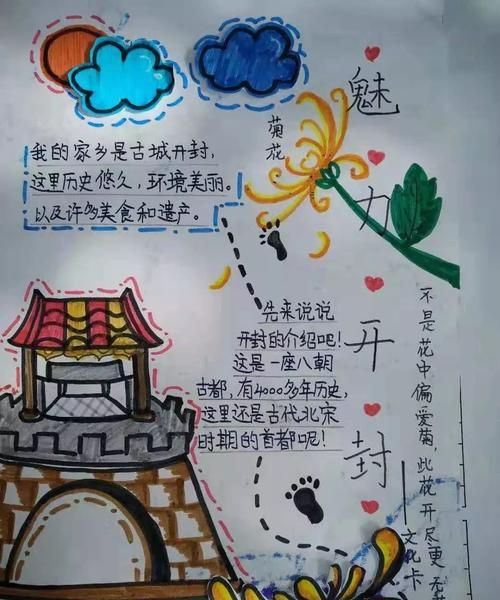 魅力开封
菊花
我的家乡是古城开封，
这里历史悠久，环境美丽。
以及许多美食和遗产。
先来说说
开封的介绍吧！
这是一座八朝
古都，有4000多年历史，
这里还是古代北宋
时期的首都呢！
不是花中偏爱菊，此花开尽更无
文化卡